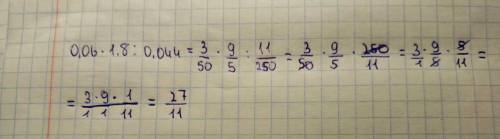 0,06 · 1.8 : 0,044 = 3/50 · 9/5 : 11/250 = 3/50 · 9/5 · 250/11 = 3/1 · 9/8 · 8/11 =
= 3·9·1/1 1 11 = 27/11